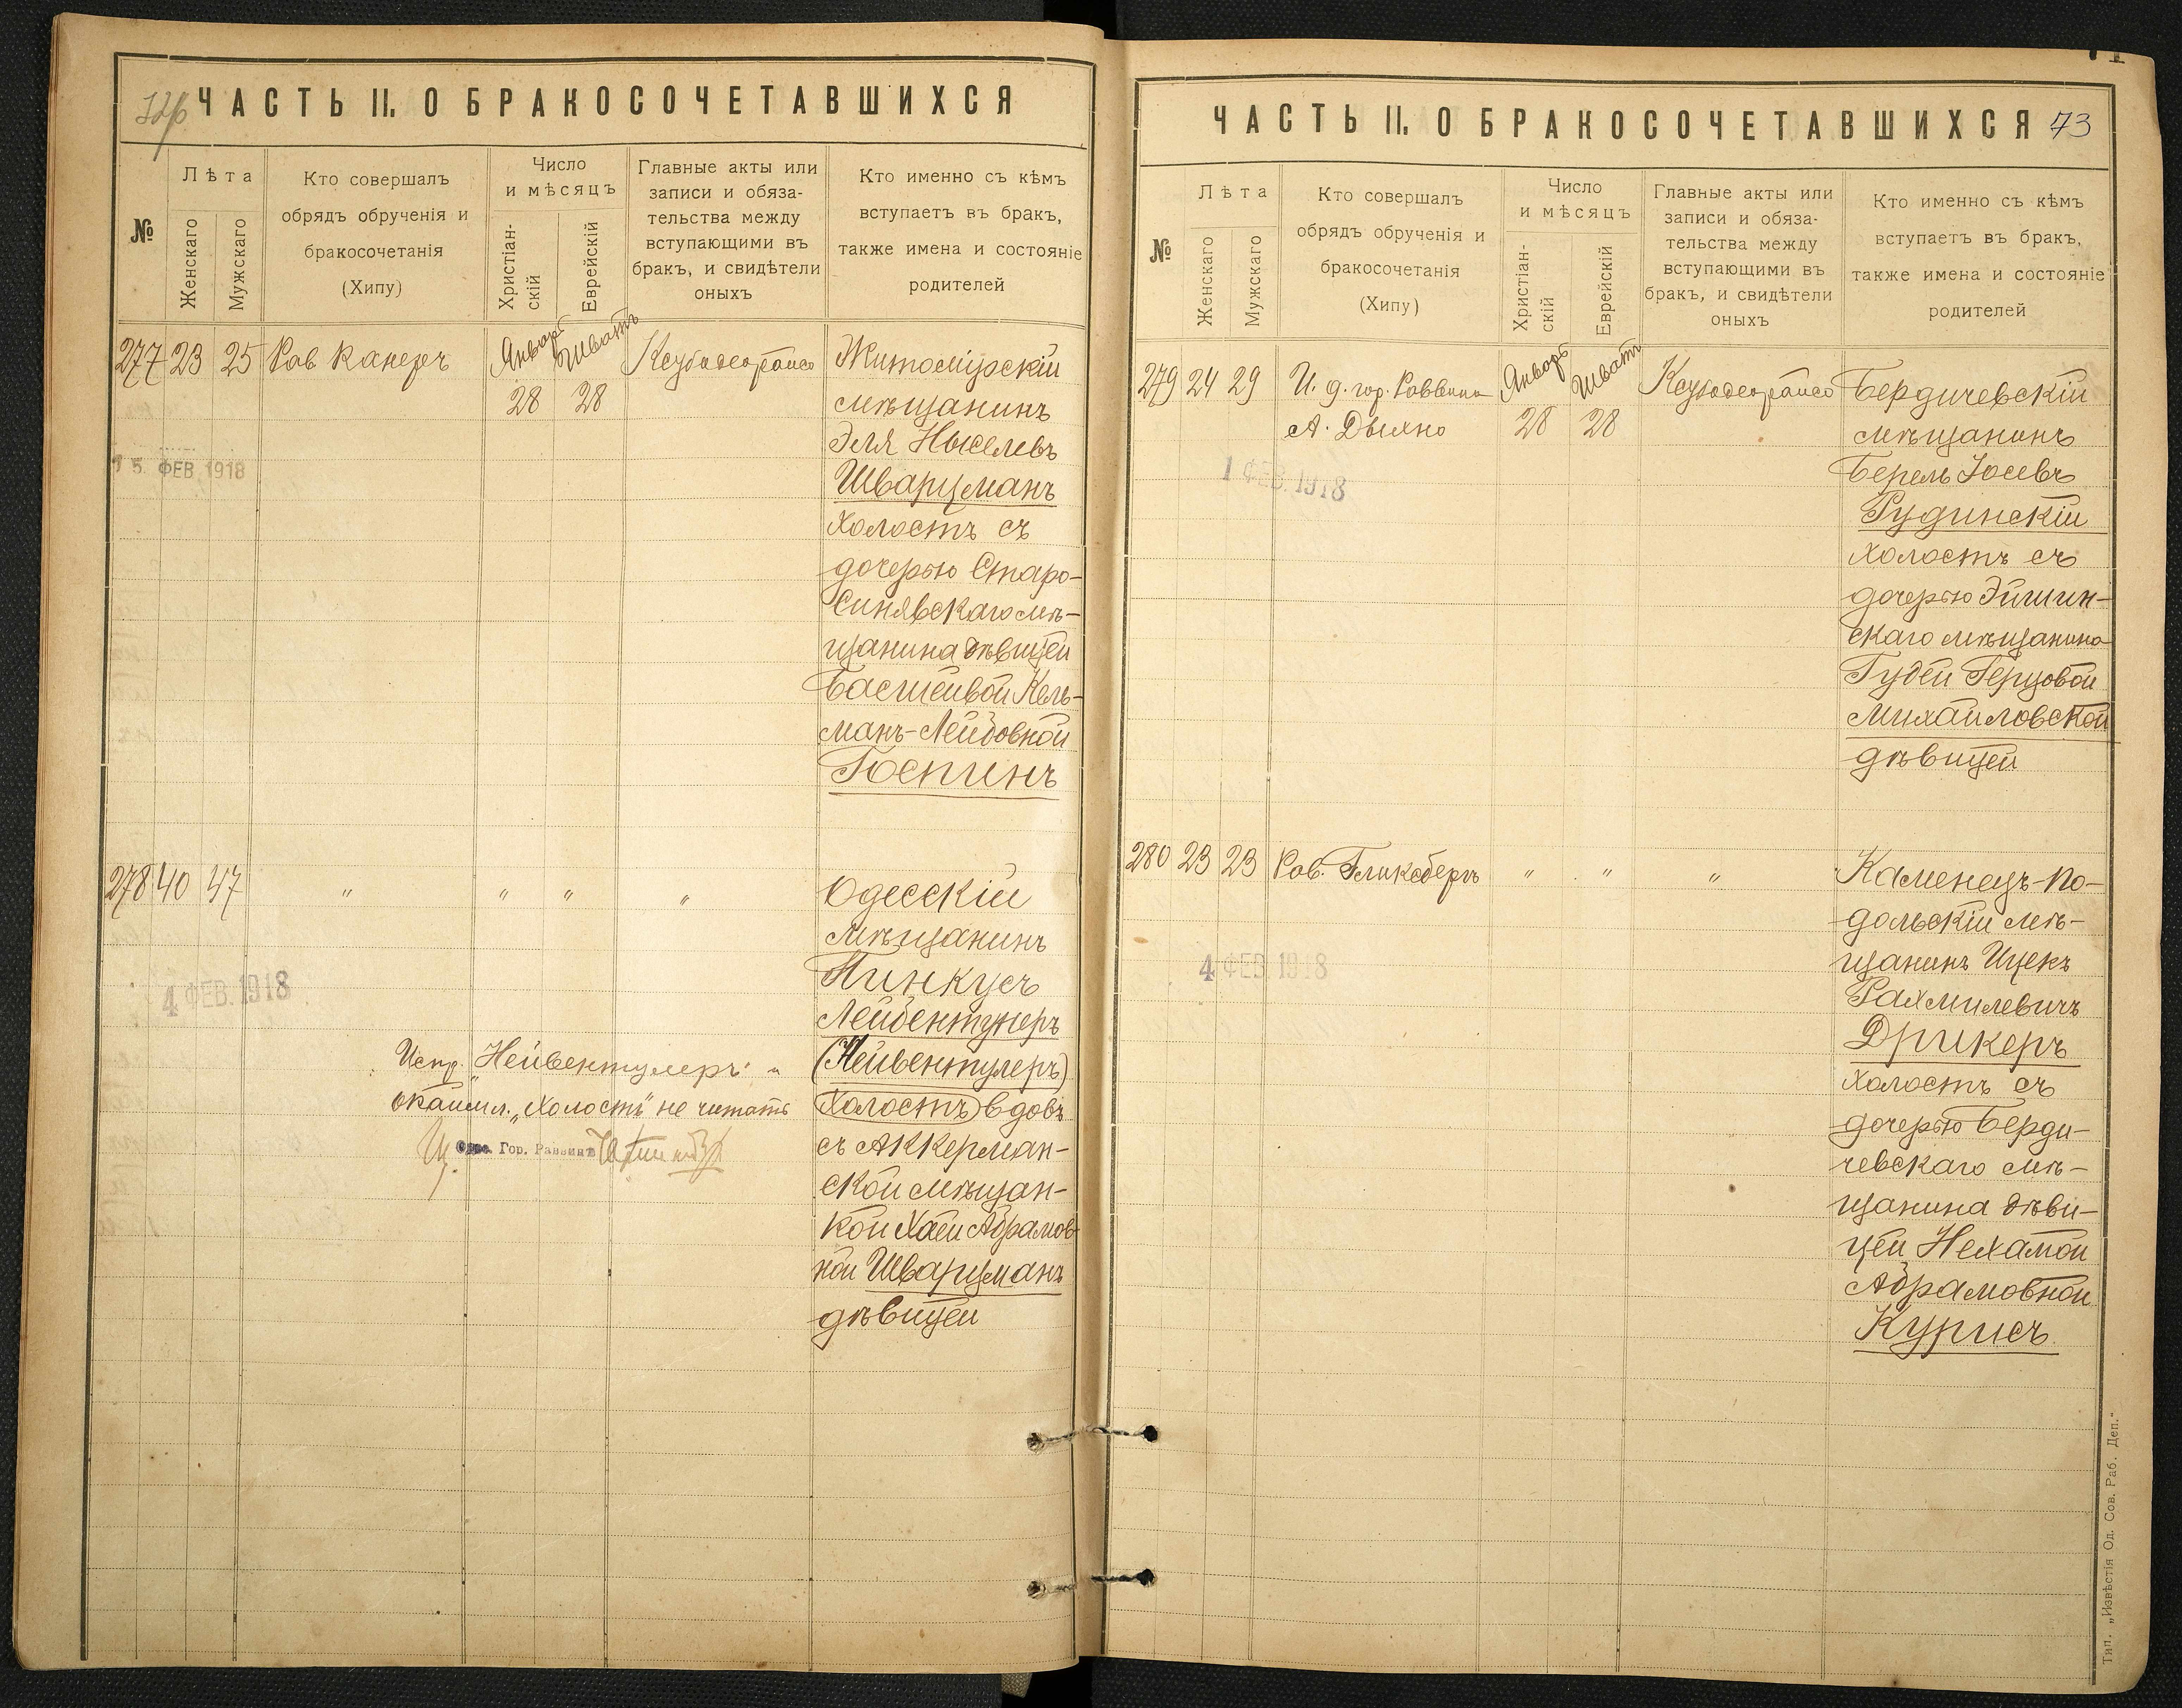 ЧАСТЬ II. О БРАКОСОЧЕТАВШИХСЯ
№
Лѣта
Женскаго
Мужскаго
Кто совершалъ
обрядъ обрученія и
бракосочетанія
(Хипу)
Число
и мѣсяцъ
Христіан-
скій
Еврейскій
Главные акты или
записи и обяза-
тельства между
вступающими въ
бракъ, и свидѣтели
оныхъ
Кто именно съ кѣмъ
вступаетъ въ бракъ,
также имена и состояніе
родителей
277 23 25 Рав. Канеръ Январь 28 Шватъ 28
Житомірскій
мѣщанинъ
Эля Ныселевъ
Шварцманъ
холостъ съ
дочерью Старо-
Синявскаго мѣ-
щанина дѣвицей
Басшейвой Кель-
манъ-Лейбовной
Госпинъ
15 ФЕВ. 1918
278 40 47 " " " "
Одесскій
мѣщанинъ
Пинкусъ
(Нейвентулеръ)
холостъ вдовъ
съ Аккерман-
ской мѣщан-
кой Хаей Абрамов-
ной Шварцманъ
дѣвицей
4 ФЕВ. 1918
Испр. „Нейвентулеръ" и
окаймл. „холостъ" не читать
Одес. Гор. Раввинъ
ЧАСТЬ II. О БРАКОСОЧЕТАВШИХСЯ 73
№
Лѣта
Женскаго
Мужскаго
Кто совершалъ
обрядъ обрученія и
бракосочетанія
(Хипу)
Число
и мѣсяцъ
Христіан-
скій
Еврейскій
Главные акты или
записи и обяза-
тельства между
вступающими въ
бракъ, и свидѣтели
оныхъ
Кто именно съ кѣмъ
вступаетъ въ бракъ,
также имена и состояніе
родителей
279 24 29 И. д. гор. Раввина
А. Дыхно
Январь 28 Шватъ 28
Бердичевскій
мѣщанинъ
Берель Іосевъ
Рудинскій
холостъ съ
дочерью Эйшин-
скаго мѣщанина
Гудей Герцовой
Михайловской
дѣвицей
1 ФЕВ. 1918
280 23 23 Рав. Гликсбергъ " " "
Каменецъ-По-
дольскій мѣ-
щанинъ Ицекъ
Рахмилевичъ
Дрикеръ
холостъ съ
дочерью Берди-
чевскаго мѣ-
щанина дѣви-
цей Нехамой
Абрамовной
Курисъ
4 ФЕВ. 1918
Тип. „Извѣстія Од. Сов. Раб. Деп."